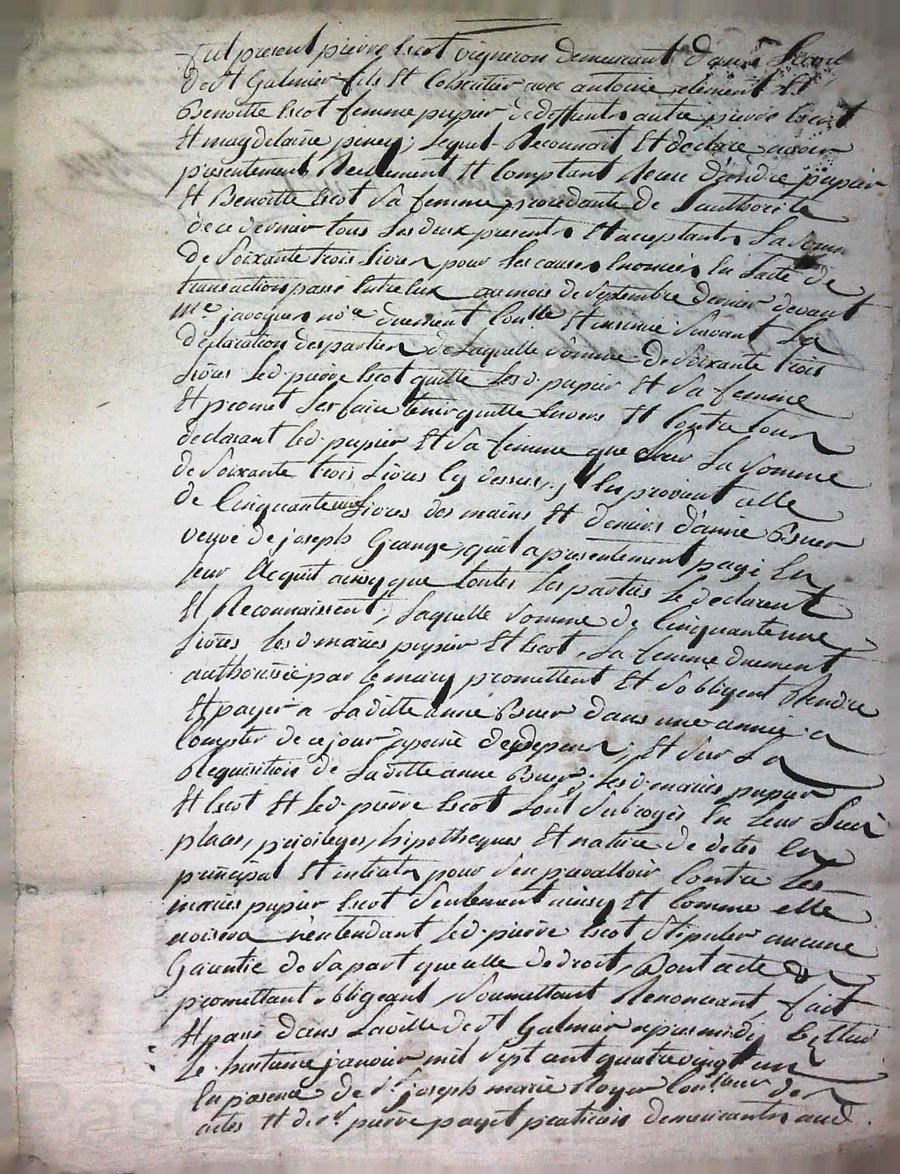 fut present pierre Escot vigneron demeurant
de St Galmier fils Et Cohéritier avec antoine, clement Et
Benoitte Escot femme pupier de deffunts autre pierre Escot
Et magdelaine piney, Lequel Reconnait Et declare avoir
présentement Réellement Et Comptant Receu d'andré pupier
Et Benoitte Escot sa femme procedante de L'authorité
de ce dernier tous Les deux presents Et acceptants La somme
de soixante trois livres pour Les causes Enoncées En L'acte de
transaction passé Entre Eux au mois de septembre dernier devant
Me javogues nore duement Collé Et insinué suivant La
déclaration des parties de Laquelle somme de soixante trois
Livres Led. pierre Escot quitte Lesd. pupier Et sa femme
Et promet Les faire tenir quitte Envers Et Contre tous
declarant Led. pupier Et sa femme que sur La somme
de soixante trois Livres Cy dessus, il En provient celle
de Cinquante une Livres des mains Et deniers d'anne Buer
veuve de joseph Grange, qu'il a présentement payé En
leur acquit ainsy que toutes Les parties Le declarent
Et Reconnaissent, Laquelle somme de Cinquante une
Livres Lesd. mariés pupier Et Escot, La femme duement
authorisée par le mary promettent Et s'obligent Rendre
Et payer a Laditte anne Buer dans une année a
Compter de ce jour apeine de depens, Et sur La
Requisition de Laditte anne Buer, Lesd. mariés pupier
Et Escot Et Led. pierre Escot L'ont subrogés En Leur Lieu
place, privileges, hipotheques Et nature de dettes En
principal Et interets pour s'en prevalloir Contre Les
mariés pupier Escot seulement ainsy Et Comme elle
avisera n'entendant Led. pierre Escot stipuler aucune
Garentie de sa part que celle de droit, Dont acte
promettant obligeant, soumettant Renonceant, fait
Et passé dans La ville de St Galmier apres midy
Le huitième janvier mil sept cent quatre vingt un
En presence de sr joseph marie Royer Conlleur des
actes Et de sr pierre payet praticien demeurants aud.